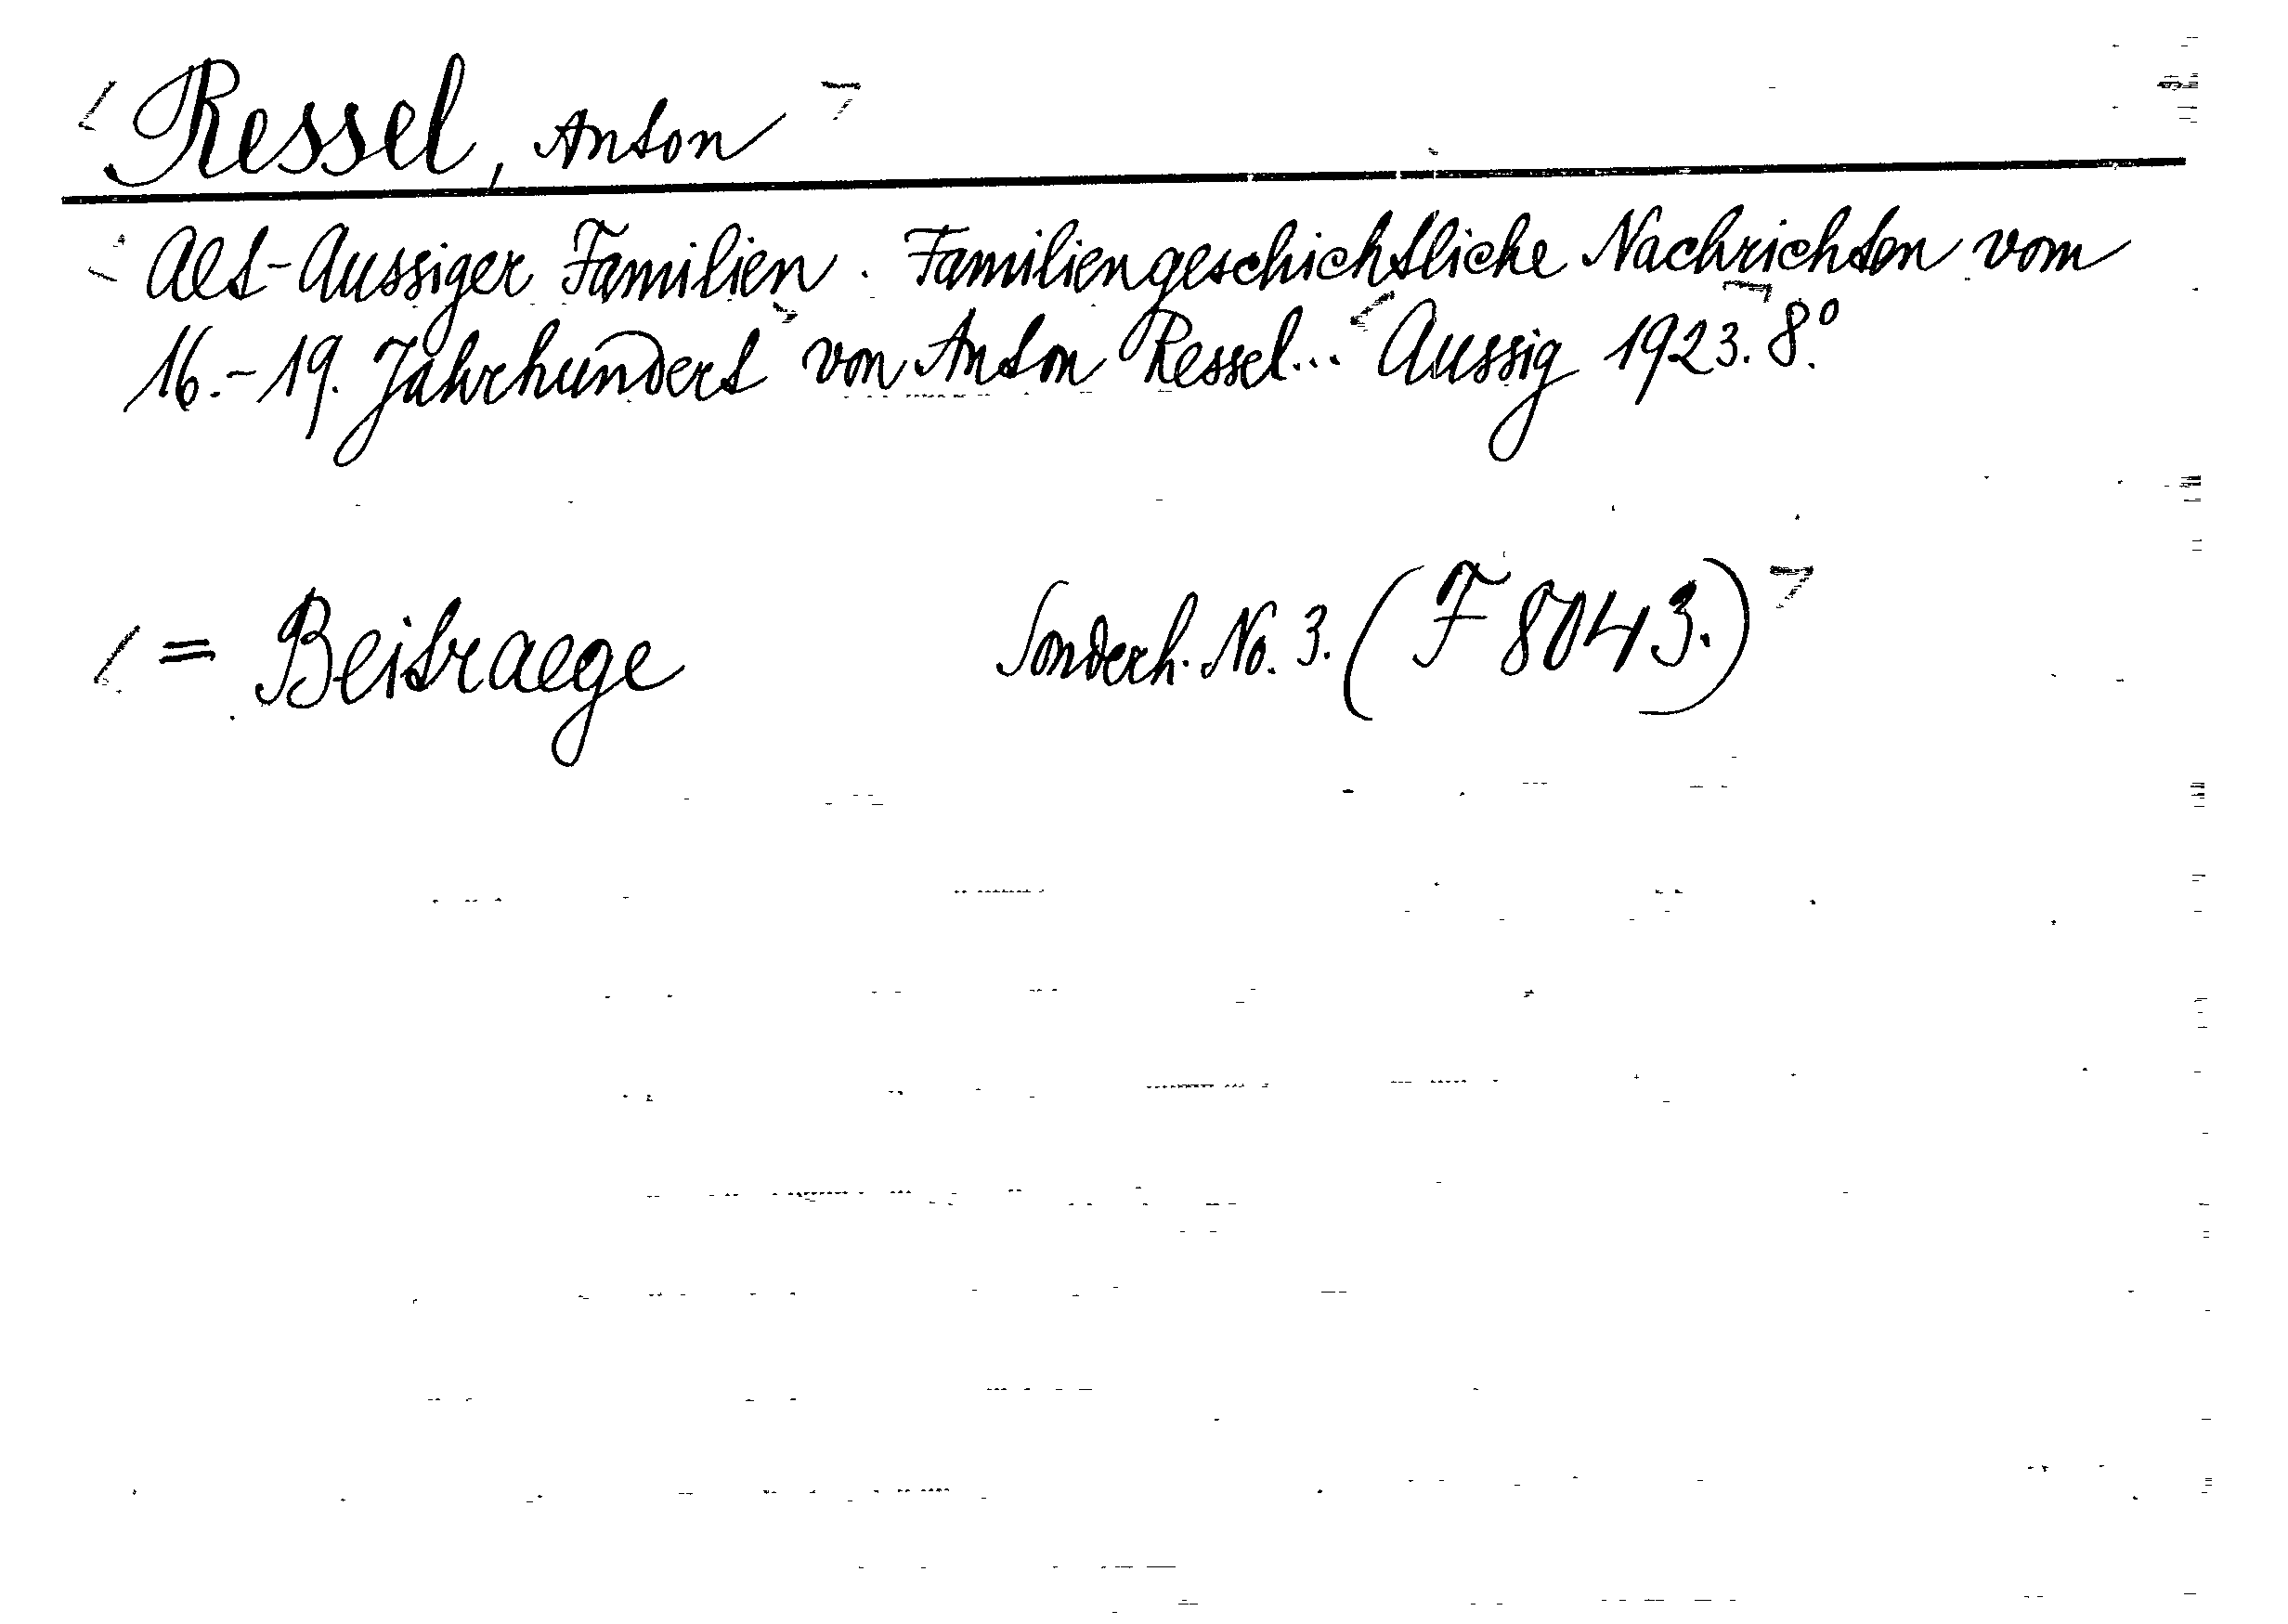 Ressel, Anton
Alt-Aussiger Familien. Familiengeschichtliche Nachrichten vom
16.-19. Jahrhundert von Anton Ressel... Aussig 1923. 8°.
= Beitraege Sonderh. No. 3. (F 8043.)